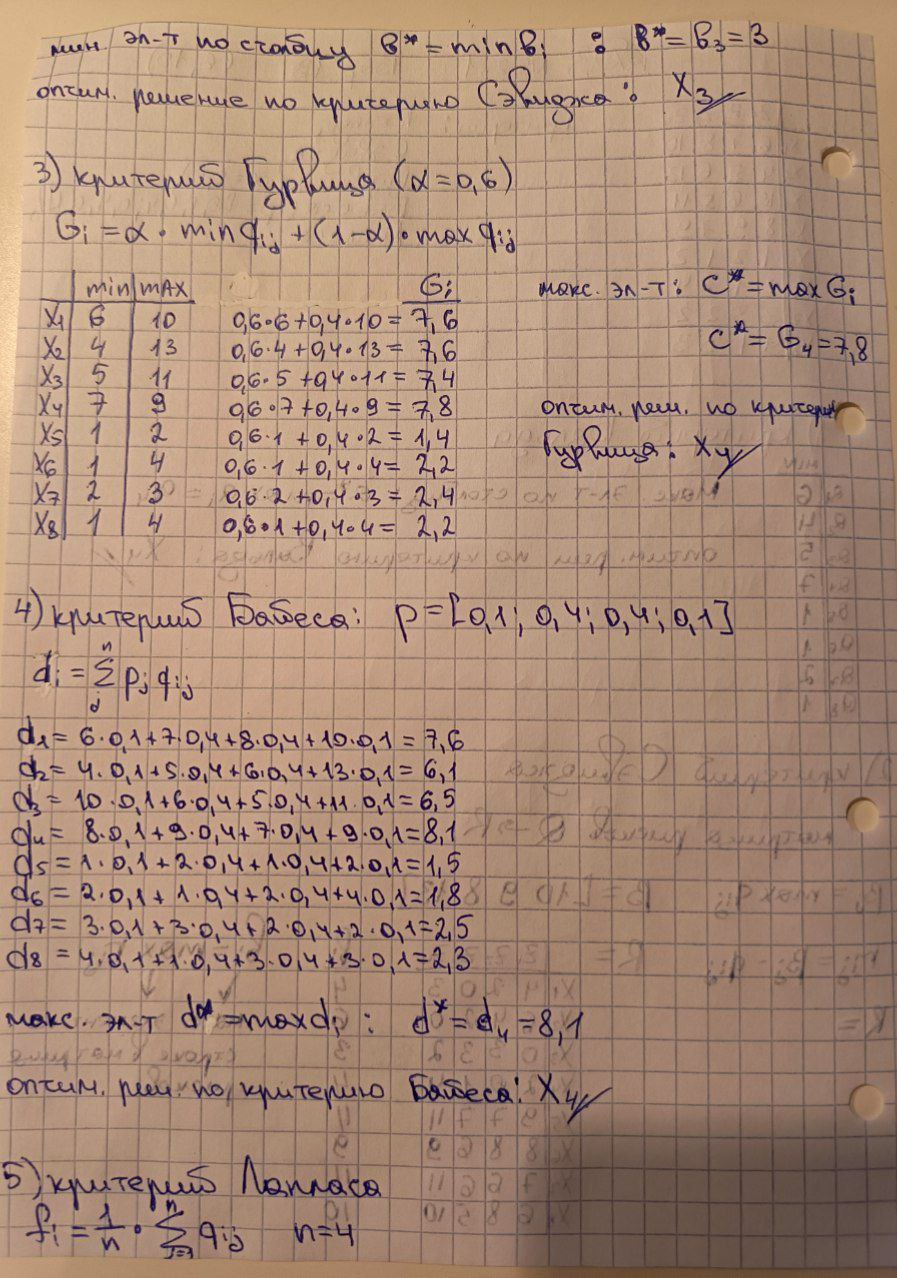 мин. эл-т по столбцу b* = min bᵢ : b* = b₃ = 3
оптим. решение по критерию Сэвиджа: X₃
3) критерий Гурвица (α = 0,6)
Gᵢ = α · min qᵢⱼ + (1-α) · max qᵢⱼ
min max Gᵢ
X₁ 6 10 0,6·6+0,4·10 = 7,6
X₂ 4 13 0,6·4+0,4·13 = 7,6
X₃ 5 11 0,6·5+0,4·11 = 7,4
X₄ 7 9 0,6·7+0,4·9 = 7,8
X₅ 1 2 0,6·1+0,4·2 = 1,4
X₆ 1 4 0,6·1+0,4·4 = 2,2
X₇ 2 3 0,6·2+0,4·3 = 2,4
X₈ 1 4 0,6·1+0,4·4 = 2,2
макс. эл-т: C* = max Gᵢ
C* = G₄ = 7,8
оптим. реш. по критерию
Гурвица: X₄
4) критерий Байеса: p = [0,1; 0,4; 0,4; 0,1]
dᵢ = Σⱼⁿ pⱼ qᵢⱼ
d₁ = 6·0,1+7·0,4+8·0,4+10·0,1 = 7,6
d₂ = 4·0,1+5·0,4+6·0,4+13·0,1 = 6,1
d₃ = 10·0,1+6·0,4+5·0,4+11·0,1 = 6,5
d₄ = 8·0,1+9·0,4+7·0,4+9·0,1 = 8,1
d₅ = 1·0,1+2·0,4+1·0,4+2·0,1 = 1,5
d₆ = 2·0,1+1·0,4+2·0,4+4·0,1 = 1,8
d₇ = 3·0,1+3·0,4+2·0,4+2·0,1 = 2,5
d₈ = 4·0,1+1·0,4+3·0,4+3·0,1 = 2,3
макс. эл-т d* = max dᵢ : d* = d₄ = 8,1
оптим. реш. по критерию Байеса: X₄
5) критерий Лапласа
fᵢ = 1/n · Σⱼ₌₁ⁿ qᵢⱼ n=4